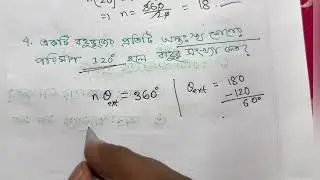 ⇒ n = 360/20 = 18
4. একটি বহুভুজের প্রতিটি অন্তঃস্থ কোণের
পরিমাণ 120° হলে বাহুর সংখ্যা কত?
n θext = 360°
θext = 180
-120
60°